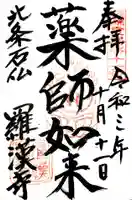 奉拝
令和三年
十月十一日
薬師如来
北条石仏
羅漢寺